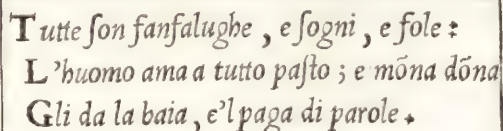 Tutte ſon fanfalughe, e ſogni, e fole:
L'huomo ama a tutto paſto; e mõna dõna
Gli da la baia, e'l paga di parole.